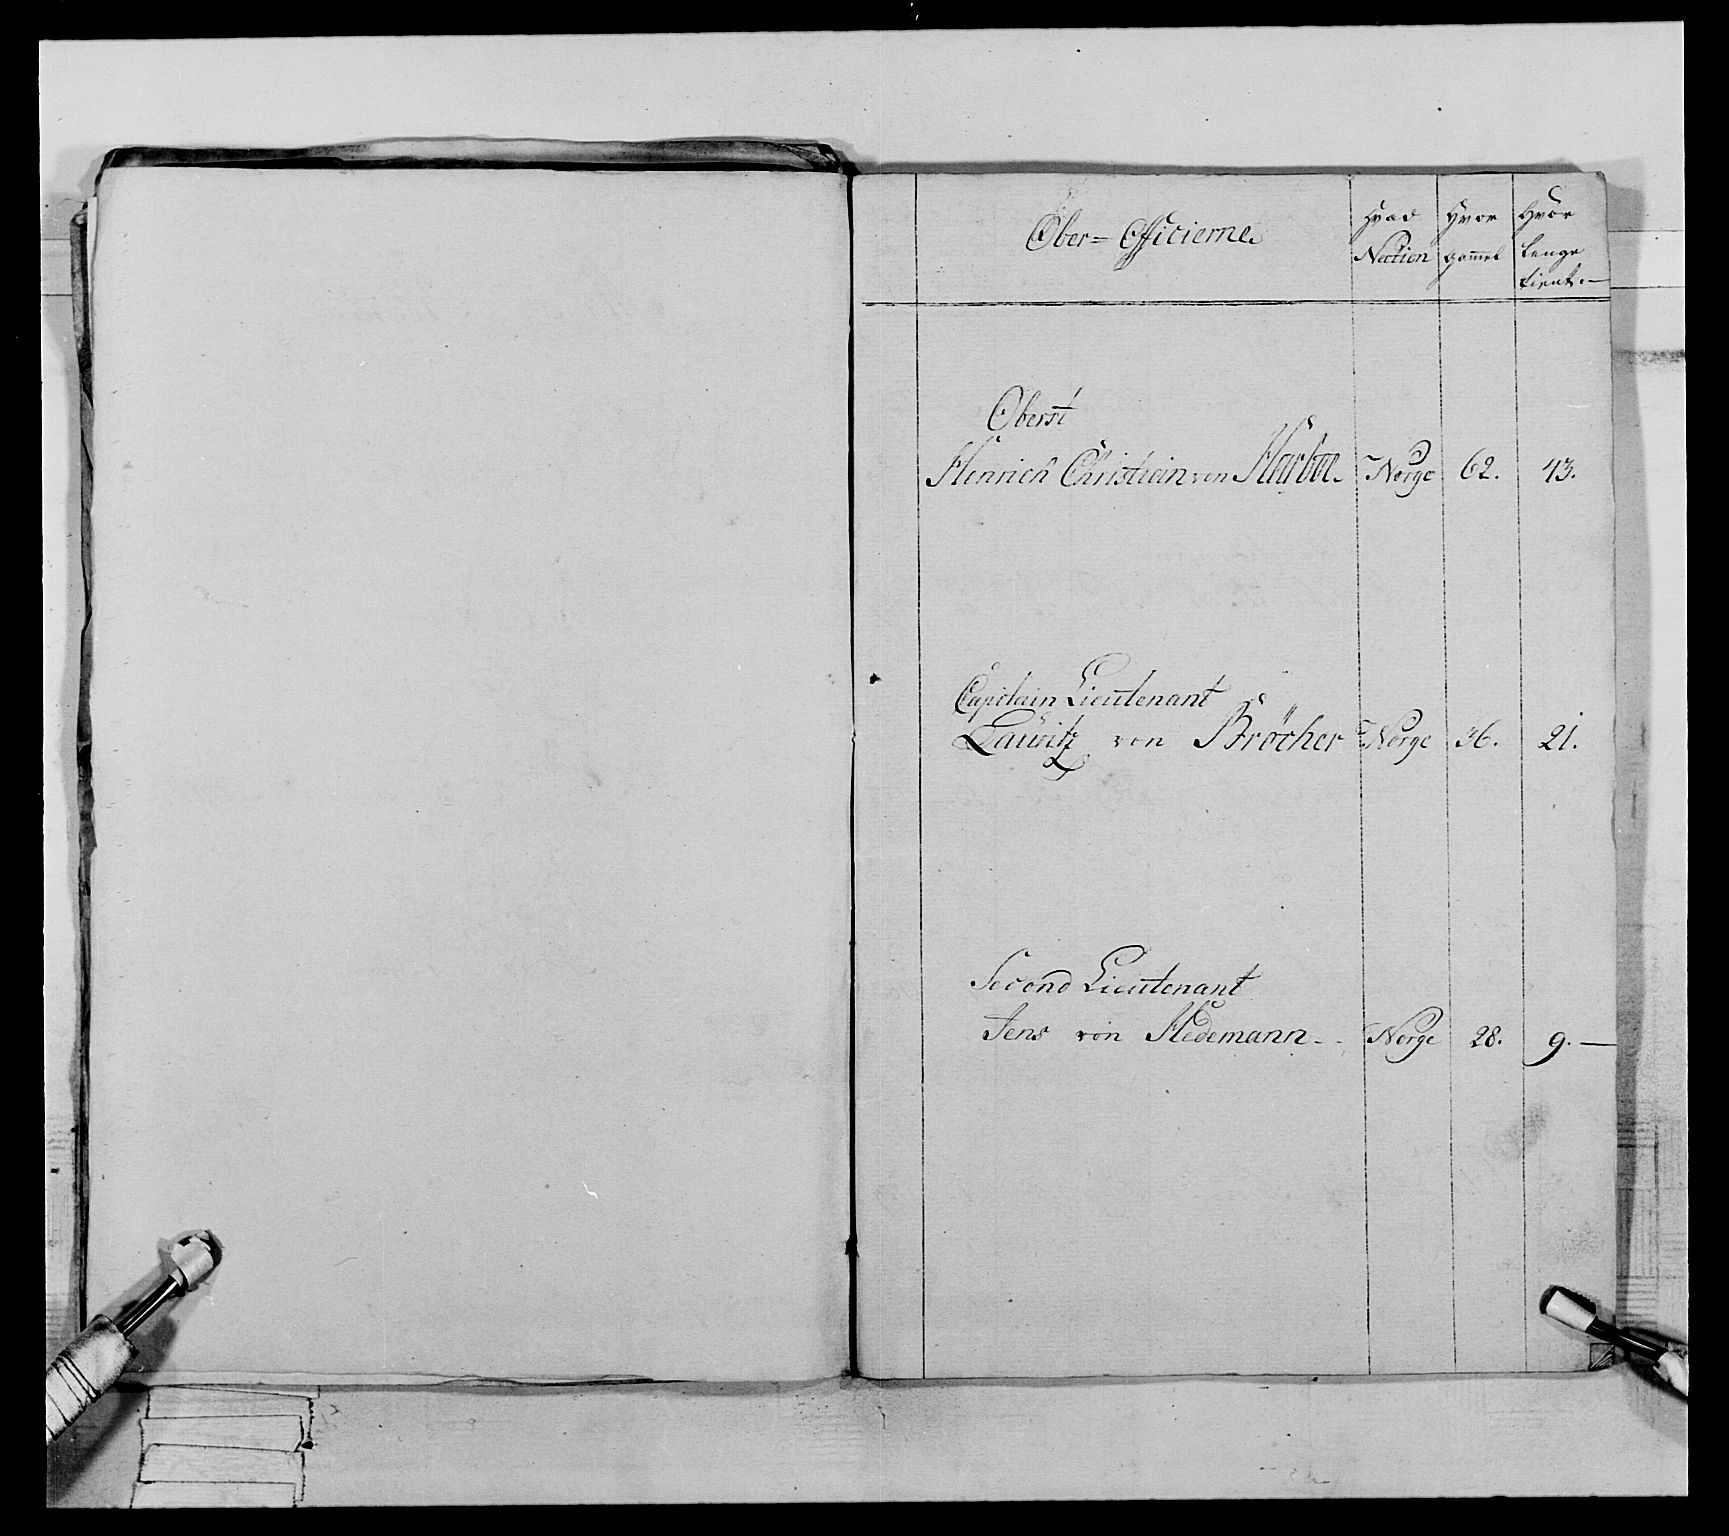 Ober= Officierne.
Hvad Nation
Hvor gammel
Hvor lenge tient.—
Oberst
Henrich Christian von Harboe. Norge 62. 43.
Capitain Lieutenant
Lauritz von Bröcher Norge 36. 21.
Second Lieutenant
Jens von Hedemann Norge 28. 9.—